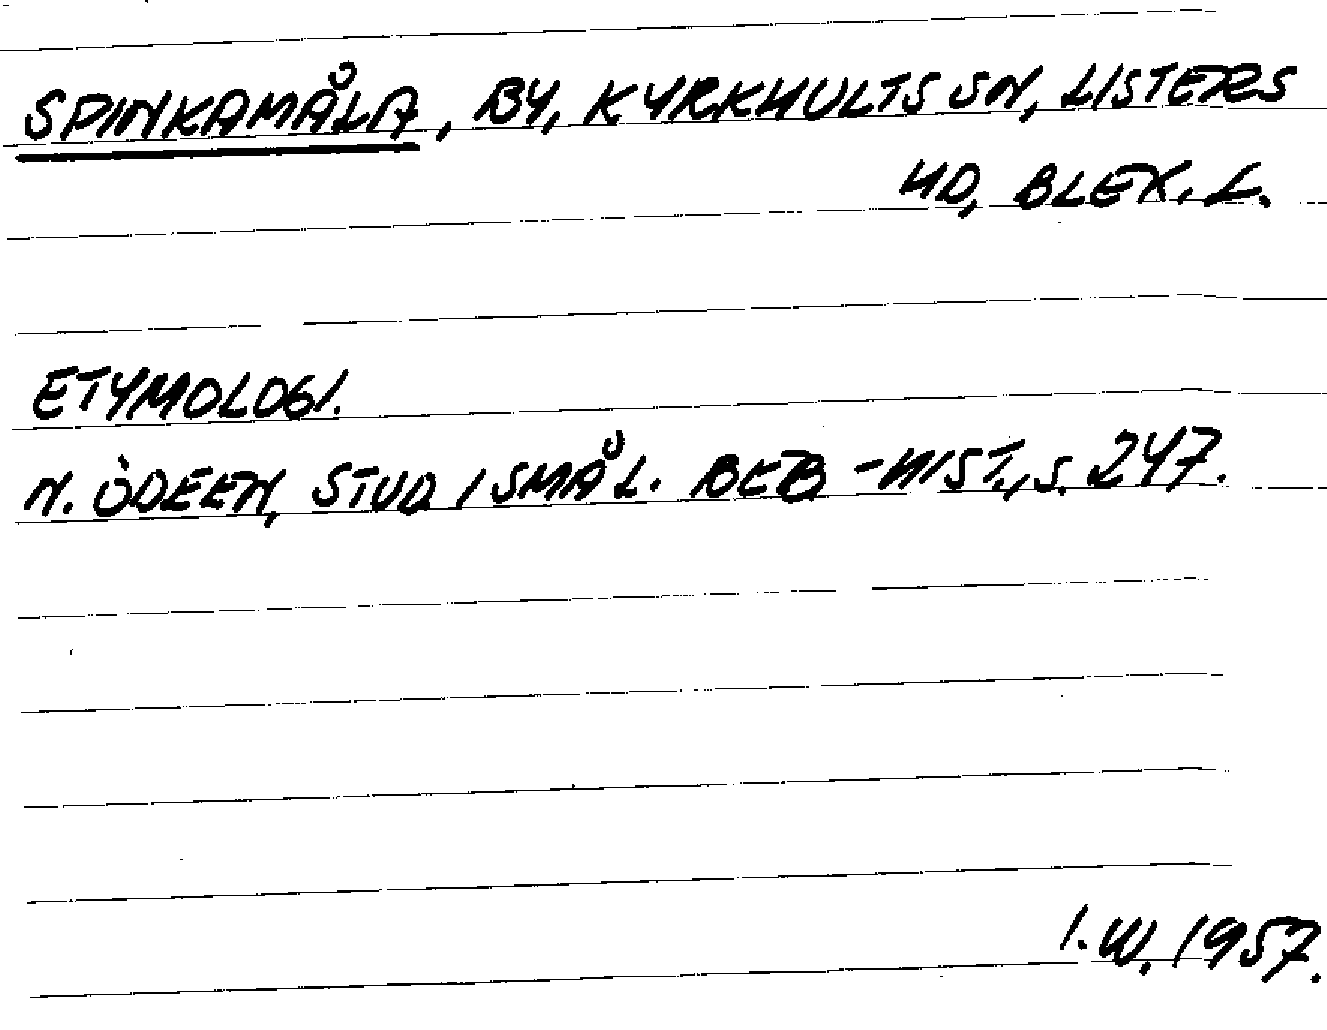 SPINKAMÅLA, BY, KYRKHULTS SN, LISTERS
HD, BLEK. L.
ETYMOLOGI.
N. ÖDEEN, STUD. I SMÅL. BEB-HIST., S. 247.
I. W. 1957.